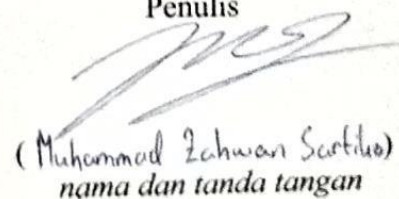 Penulis
(Muhammad Zahwan Sartiko)
nama dan tanda tangan